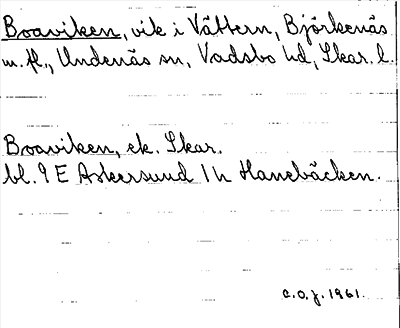 Boaviken, vik i Vättern, Björkenäs
m. fl., Undenäs sn, Vadsbo hd, Skar. l.
Boaviken, ek. Skar.
bl. 9 E Askersund 1 h Hanebäcken.
C.O.J. 1961.